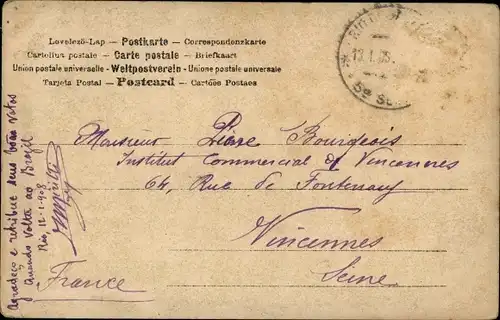 Levelező-Lap — Postkarte — Correspondenzkarte
Cartolina postale — Carte postale — Briefkaart
Union postale universelle — Weltpostverein — Unione postale universale
Tarjeta Postal — Postcard — Cartões Postaes
Monsieur Pierre Bourgeois
Institut Commercial de Vincennes
64, Rue de Fontenay
Vincennes
Seine
France
Agradeço e retribue seus bons votos
Quando volta ao Brazil
Rio, 12-1-908
5ª S